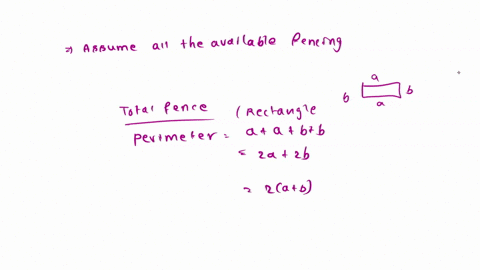 ⇒ Assume all the available Pencing
a
b b
a
Total Pence (Rectangle
Perimeter = a+a+b+b
= 2a+2b
= 2(a+b)